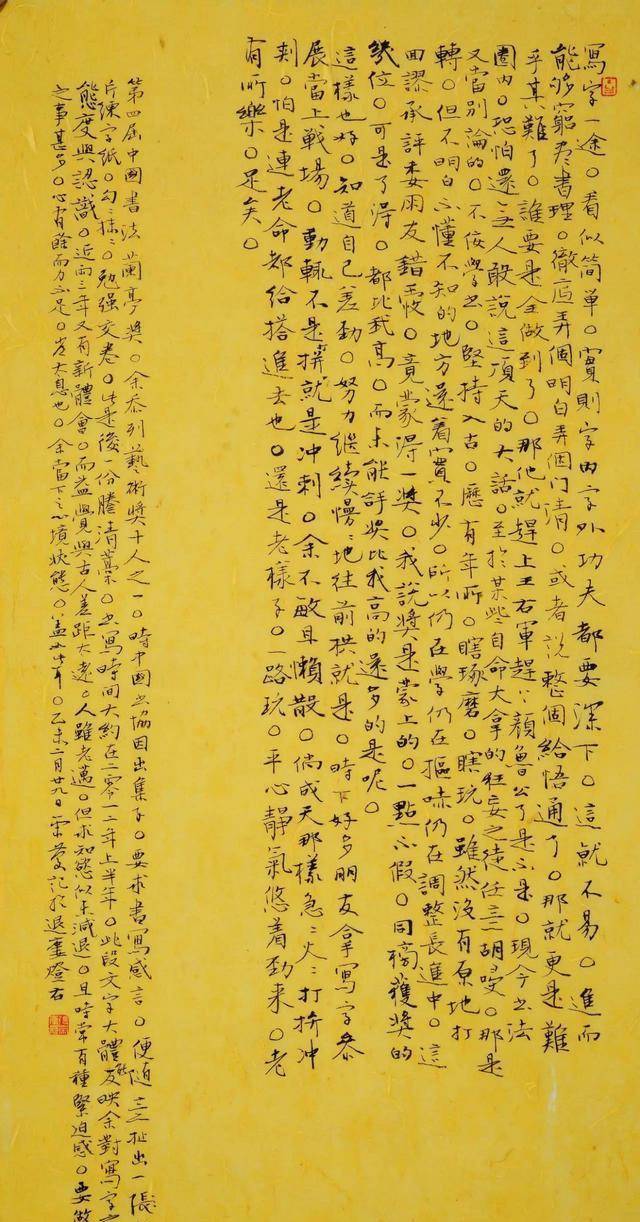 寫字一途。看似简单。實則字内字外功夫都要深下。這就不易。進而
能够窮盡書理。徹底弄個明白弄個门清。或者説整個給悟通了。那就更是難
乎其難了。誰要是全做到了。那他就趕上王右軍趕上顔魯公了是不是。現今书法
圈内。恐怕還无人敢説這項天的大話。至於某些自命大拿的狂妄之徒任意胡
又當别論的。不佞學书。堅持入古。歷有年所。瞎琢磨。瞎玩。雖然没有原地打
轉。但不明白不懂不知的地方還着實不少。所以仍在學仍在摳哧仍在調整長進中。這
回謬承評委朋友錯愛。竟蒙得一獎。我説獎是蒙上的。一點不假。同摘獲獎的
幾位。可是了得。都比我高。而未能評奖比我高的還多的是呢。
這樣也好。知道自己差勁。努力继续慢慢地往前拱就是。時下好多朋友拿寫字参
展當上戰場。動輒不是拼就是冲刺。余不敏且懒散。倘成天那樣急急火火打拚冲
刺。怕是連老命都给搭進去也。還是老樣子。一路玩。平心靜氣悠着勁来。老
有所樂。足矣。
第四届中國書法蘭亭獎。余忝列藝術獎十人之一。時中國书協因出集子。要求書寫感言。便随意扯出一張
片練字紙。勾勾抹抹。勉强交卷。此是後一份謄清藁。书寫時間大約在二零一二年上半年。此段文字大體能反映余對寫字之
態度與認識。近两三年又有新體會。而益覺與古人差距大遠。人雖老邁。但求知慾似未減退。且時常有種緊迫感。要做
之事甚多。心有餘而力不足。岂太息也。余當下之心境狀態。盖如此耳。乙未二月廿九日雲 记於退廬燈右